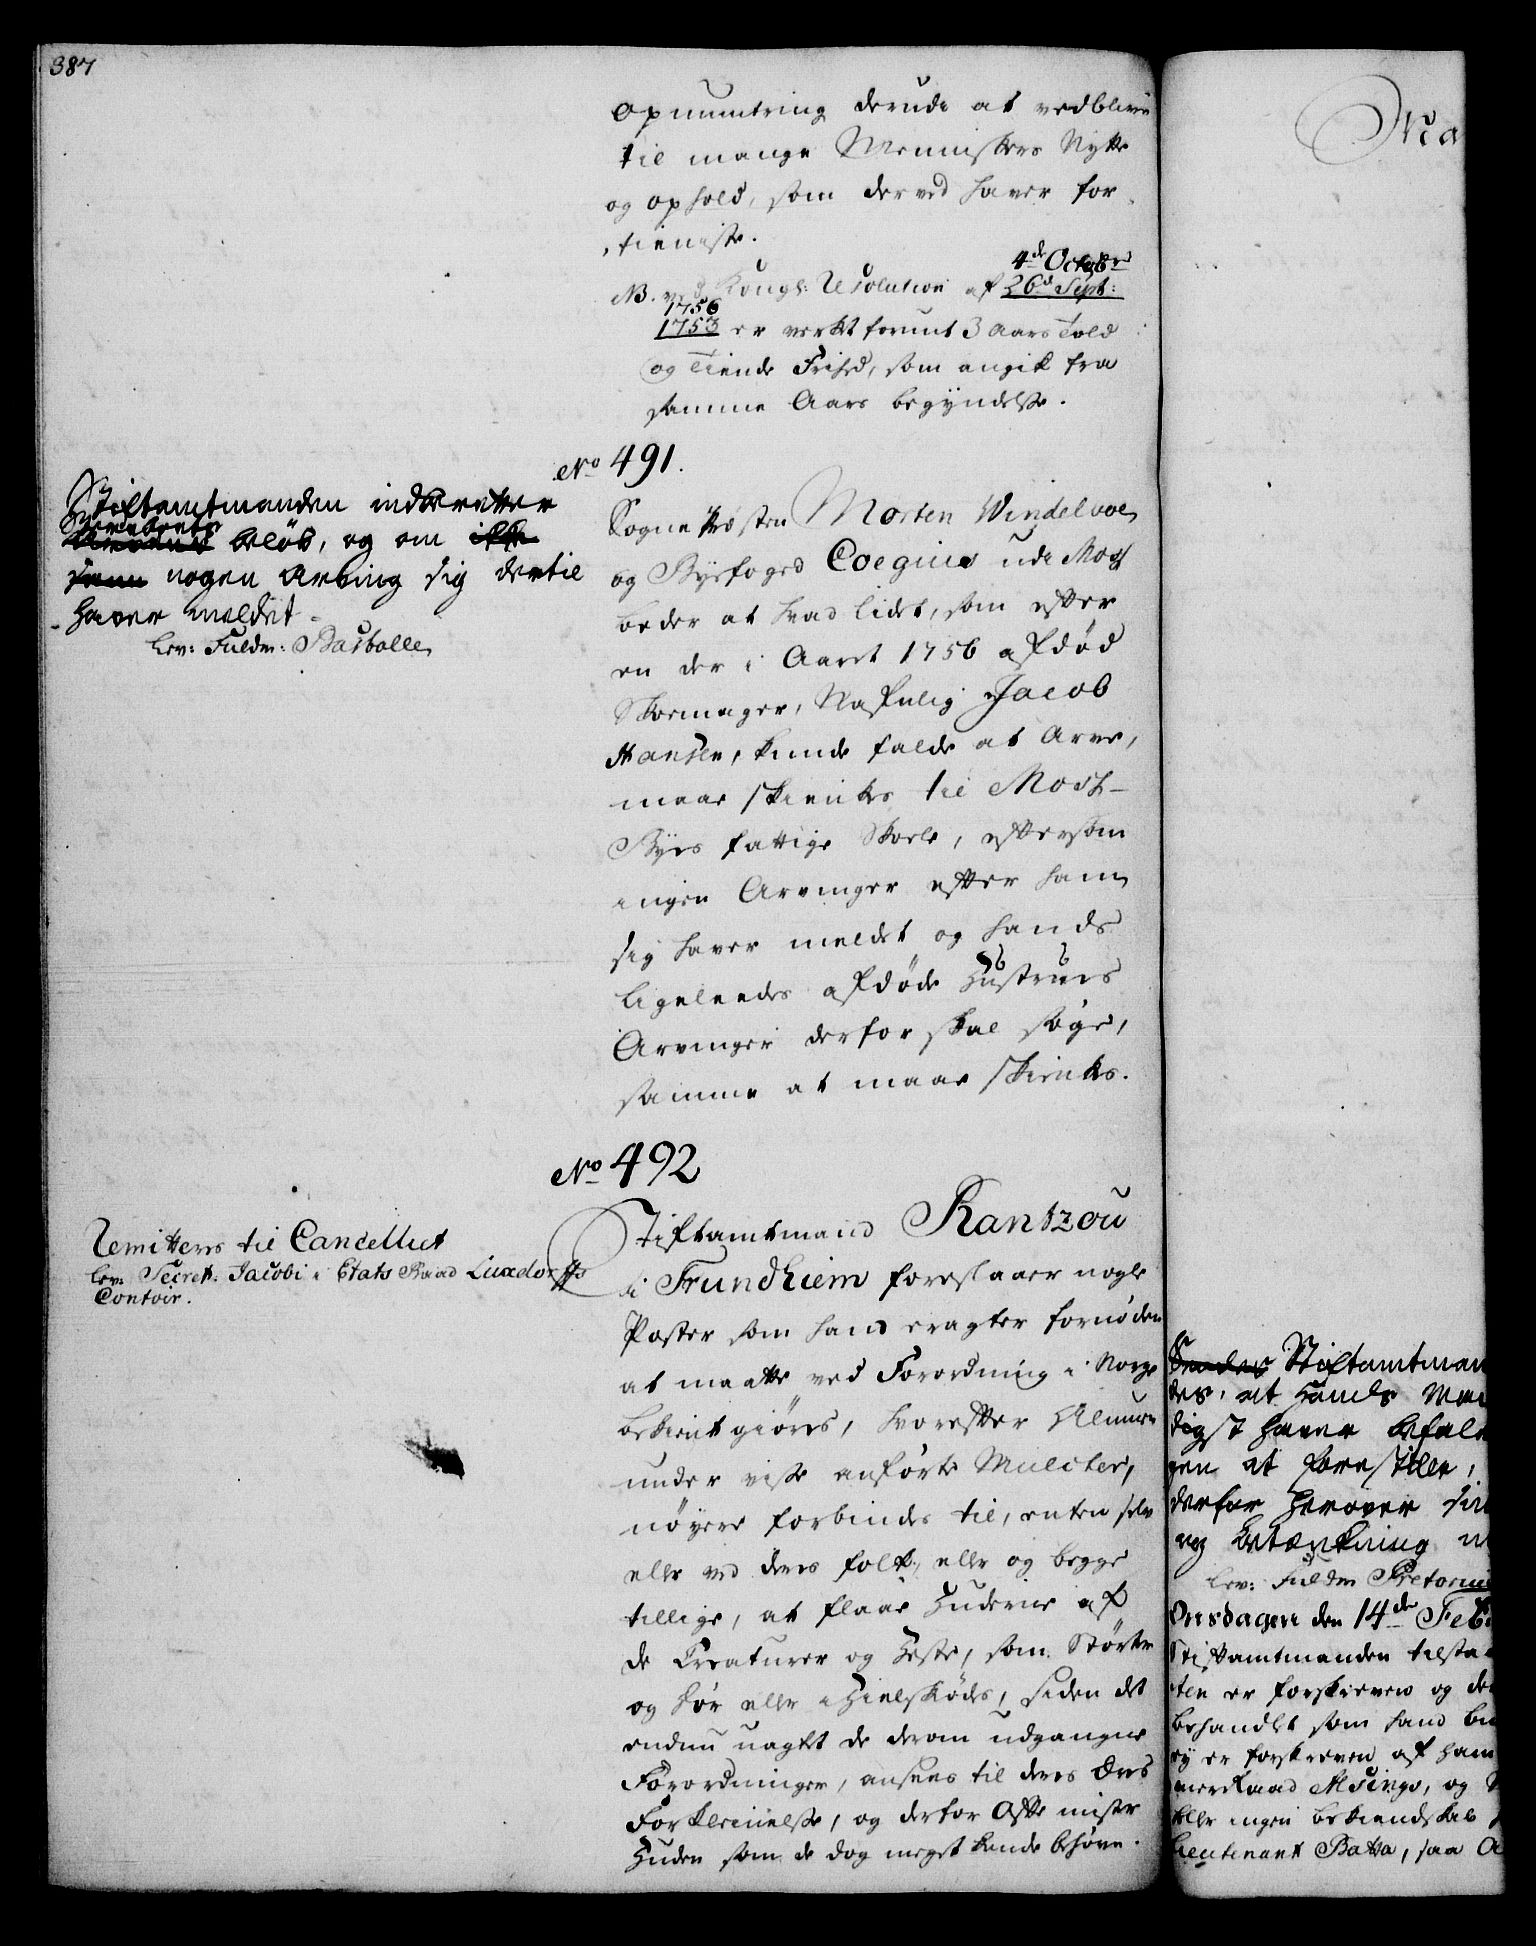 387
opmuntring derude at vedblive
til mange Menniskers Nytte
og ophold, som derved haver for-
tieniste.
NB. ved Kongl: Resolution af 4de Octobr 26d Sept:
1756
1753 er verket forunt 3 Aars Told
og Tiende Frihed, som angik fra
samme Aars begyndelse.
No 491.
Stiftamtmanden indberetter
beløb, og om ikke
nogen Arving sig dertil
haver meldet
Lev: Fuldm: Basballe
Sogne Præsten Morten Windelboe
og Byefoged Coegius udi Moss
beder at hvad lidet, som efter
en der i Aaret 1756 afdød
Skoemager, Nafnlig Jacob
Hansen, kunde falde at Arve,
maae skienkes til Moss
Byes fattige Skole, eftersom
ingen Arvinger efter ham
sig haver meldet og hands
ligeleedes afdøde Hustrues
Arvinger derfor skal søge,
samme at maae skienkes.
No 492
Remitteres til Cancelliet
Lev: Secret. Jacobi i Etats Raad Luxdorffs
Contoir.
Stiftamtmand Rantzou
i Trundhiem foreslaaer nogle
Poster som hand eragter fornøden
at maatte ved Forordning i Norge
bekient giøres, hvorefter Almuen
under visse anførte Mulcter,
nøyere forbindes til, enten selv
eller ved deres folk, eller og begge
tillige, at flaae Huderne af
de Creaturer og Heste, som Størter
og døer eller ihielskødes, siden det
endnu uagtet de derom udgangne
Forordninger, ansees til deres Æres
Forkleinelse, og derfor Ofte mister
Huden som de dog meget kunde behøve.
Ma
Sendes Stiftamtman
des, at Hands
digst haver befale
gen at forestille,
derfor herover sin
og betænkning
Lev: Fuldm Pretorius
Onsdagen den 14de Feb
Stiftamtmanden tilstaa
ten er forskreven og de
behandlet som hand
ey er forskreven af ham
merRaad Alsing, og
eller ingen bekiendskab
Lieutenant Batta, saa